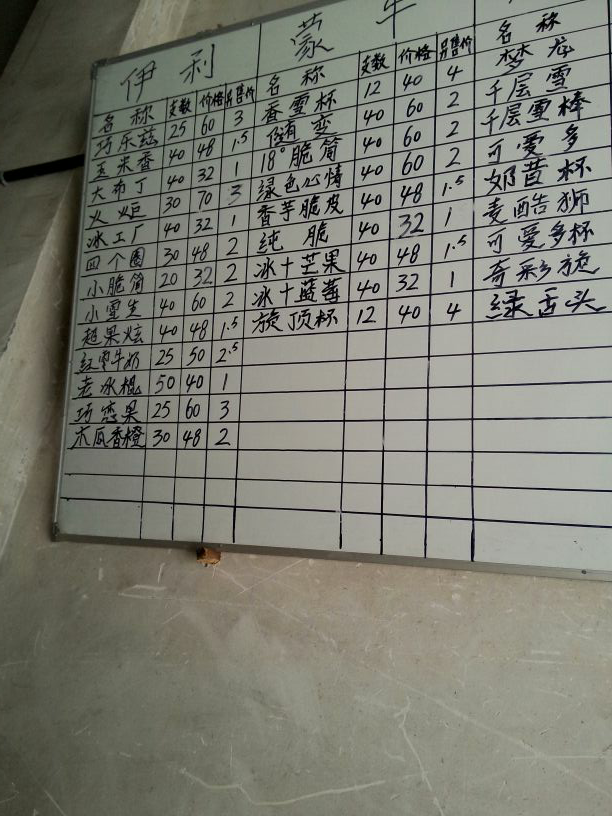 伊利
名称 支数 价格 另售价
巧乐兹 25 60 3
玉米香 40 48 1.5
大布丁 40 32 1
火炬 30 70 3
冰工厂 40 32 1
四个圈 30 48 2
小脆筒 20 32 2
小雪生 40 60 2
超果炫 40 48 1.5
红枣牛奶 25 50 2.5
老冰棍 50 40 1
巧恋果 25 60 3
木瓜香橙 30 48 2
蒙牛
名称 支数 价格 另售价
香雪杯 12 40 4
随变 40 60 2
18°脆筒 40 60 2
绿色心情 40 60 2
香芋脆皮 40 48 1.5
纯脆 40 32 1
冰+芒果 40 48 1.5
冰+蓝莓 40 32 1
旋顶杯 12 40 4
名称
梦龙
千层雪
千层雪棒
可爱多
奶昔杯
麦酷狮
可爱多杯
奇彩旋
绿舌头